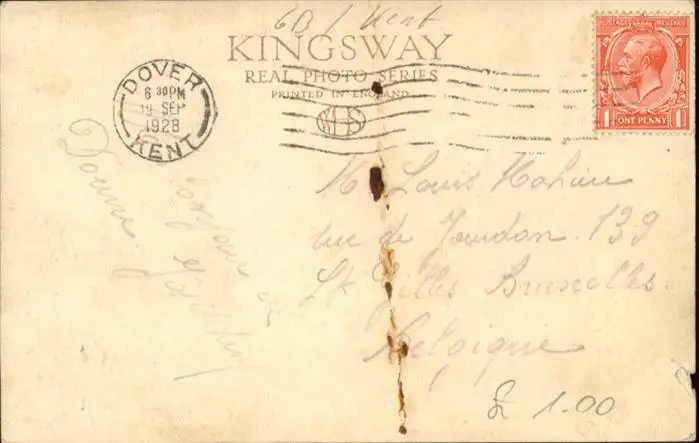 6B / Kent
KINGSWAY
REAL PHOTO SERIES
PRINTED IN ENGLAND
WHS
DOVER
6 30PM
19 SEP
1928
KENT
POSTAGE REVENUE
1 ONE PENNY 1
Bonjour de
Douvre
M Louis
rue de Jourdan 139
St Gilles Bruxelles.
Belgique
£ 1.00